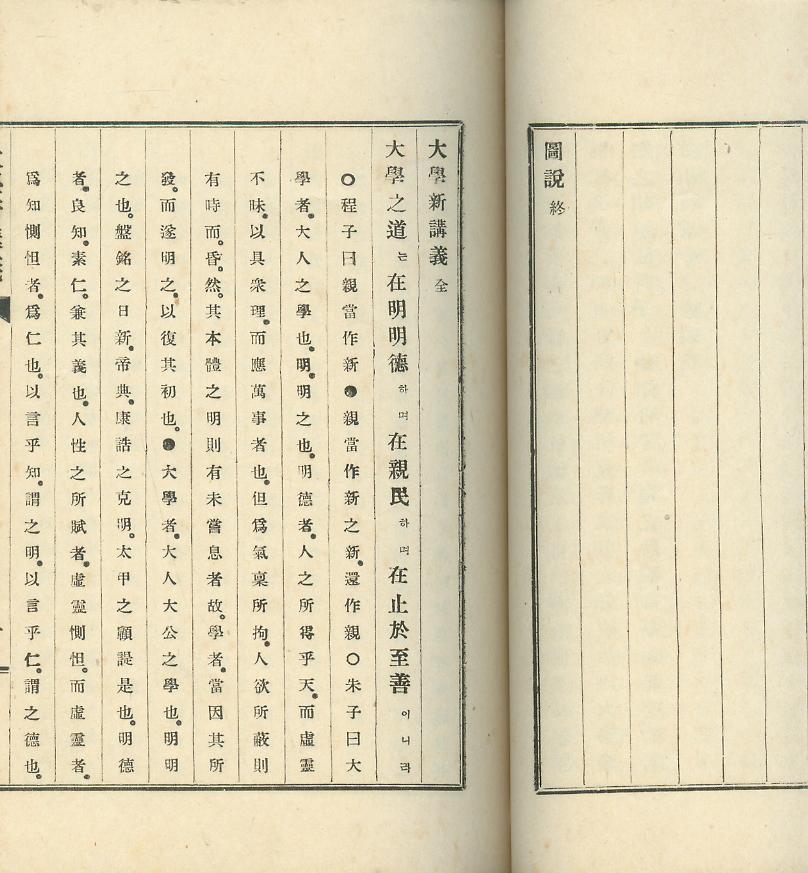 圖說 終
大學新講義 全
大學之道는在明明德하며在親民하며在止於至善이니라
○程子曰親當作新●親當作新之新。還作親○朱子曰大
學者。大人之學也。明。明之也。明德者。人之所得乎天。而虛靈
不昧。以具衆理。而應萬事者也。但爲氣稟所拘。人欲所蔽則
有時而。昏。然。其本體之明則有未嘗息者故。學者。當因其所
發。而遂明之。以復其初也。●大學者。大人大公之學也。明明
之也。盤銘之日新。帝典。康誥之克明。太甲之顧諟是也。明德
者。良知。素仁。兼其義也。人性之所賦者。虛靈惻怛。而虛靈者。
爲知惻怛者。爲仁也。以言乎知。謂之明。以言乎仁。謂之德也。